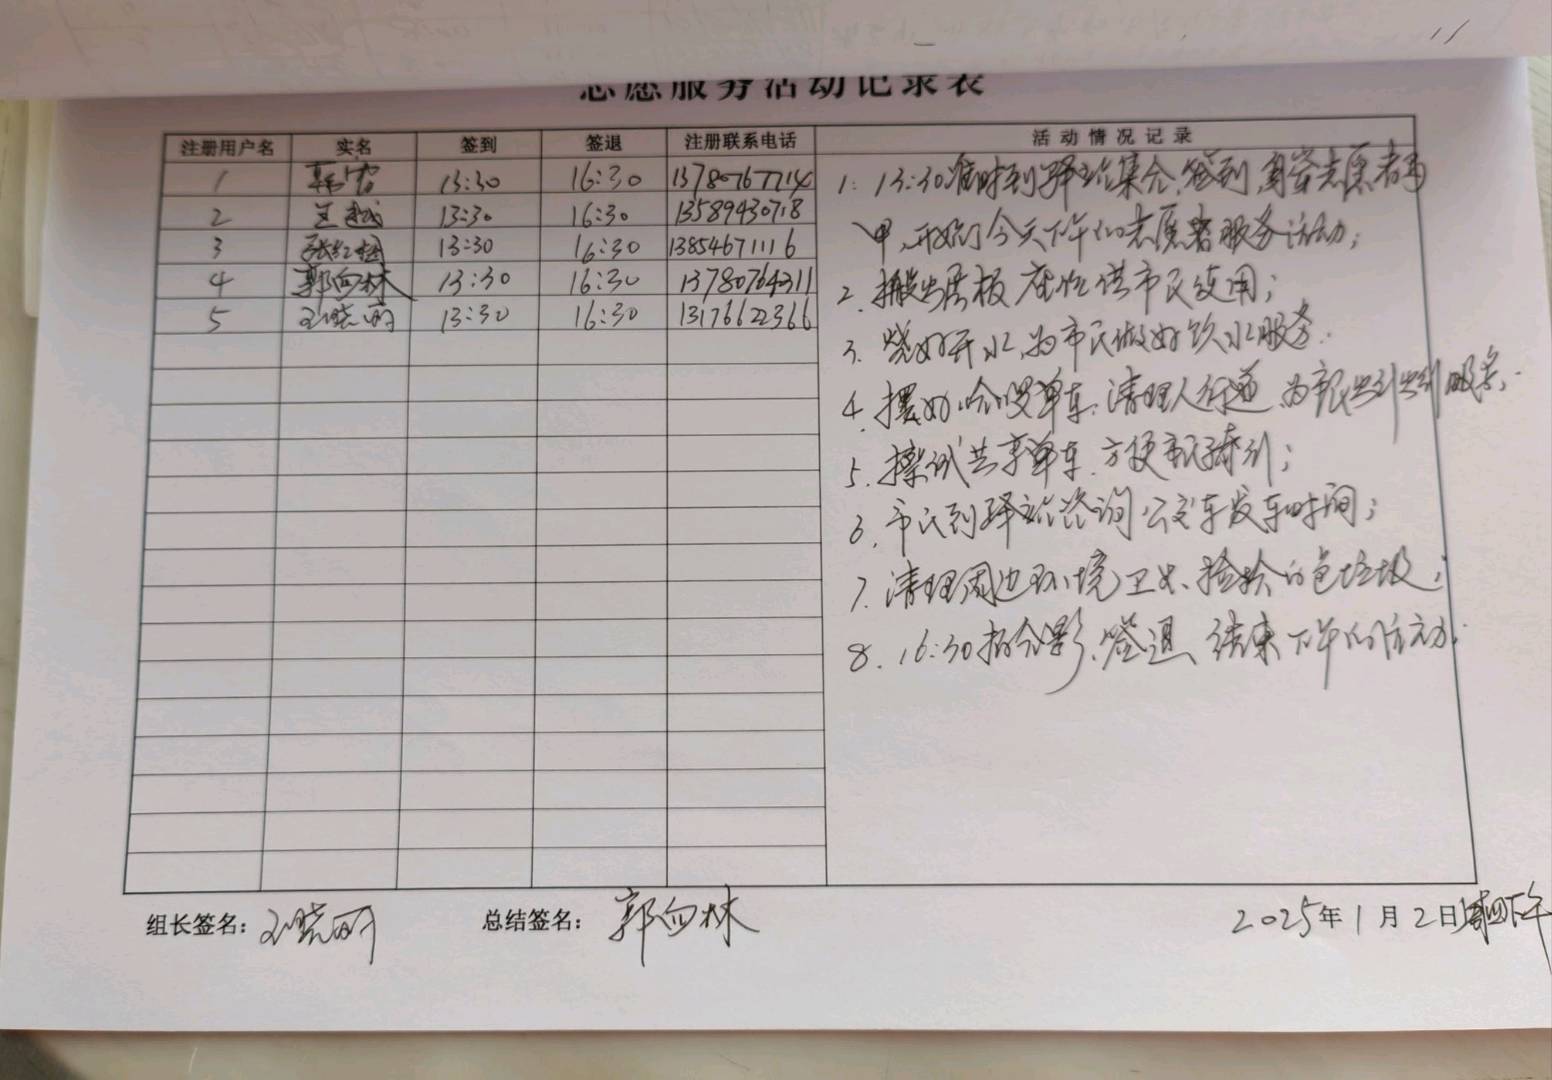 志愿服务活动记录表
注册用户名 实名 签到 签退 注册联系电话 活动情况记录
1 13:30 16:30 13780767714
2 王越 13:30 16:30 13589430718
3 张红梅 13:30 16:30 13854671116
4 郭向林 13:30 16:30 13780764311
5 晓丽 13:30 16:30 13176622366
1. 13:30准时到驿站集合,签到,穿志愿者马
甲,开始了今天下午的志愿者服务活动;
2. 搬出展板 座位供市民使用;
3. 烧好开水,为市民做好饮水服务.
4. 摆好哈啰单车,清理人行道,为市民出行服务.
5. 擦试共享单车,方便市民骑行;
6. 市民到驿站咨询公交车发车时间;
7. 清理周边环境卫生、捡拾白色垃圾;
8. 16:30拍合影、签退、结束下午的活动.
组长签名: 晓丽 总结签名: 郭向林 2025年1月2日 周四下午